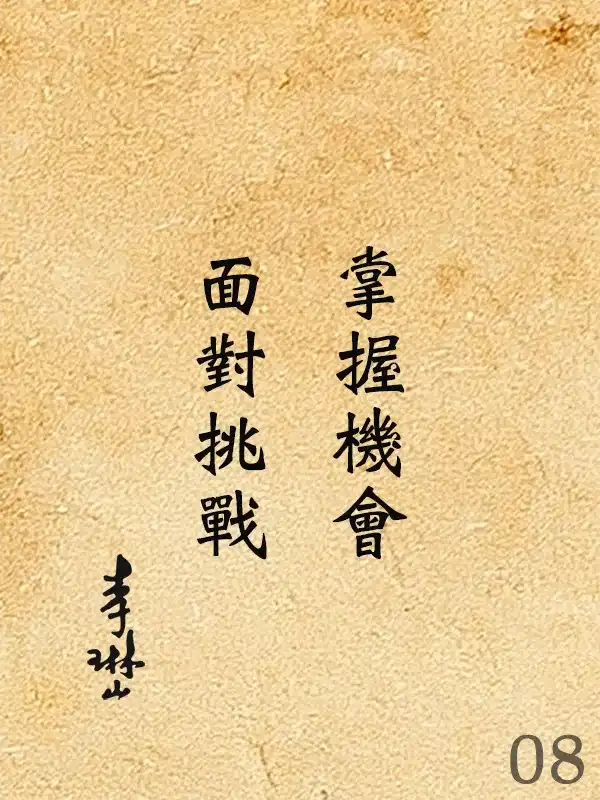 掌握機會
面對挑戰
李琳山
08